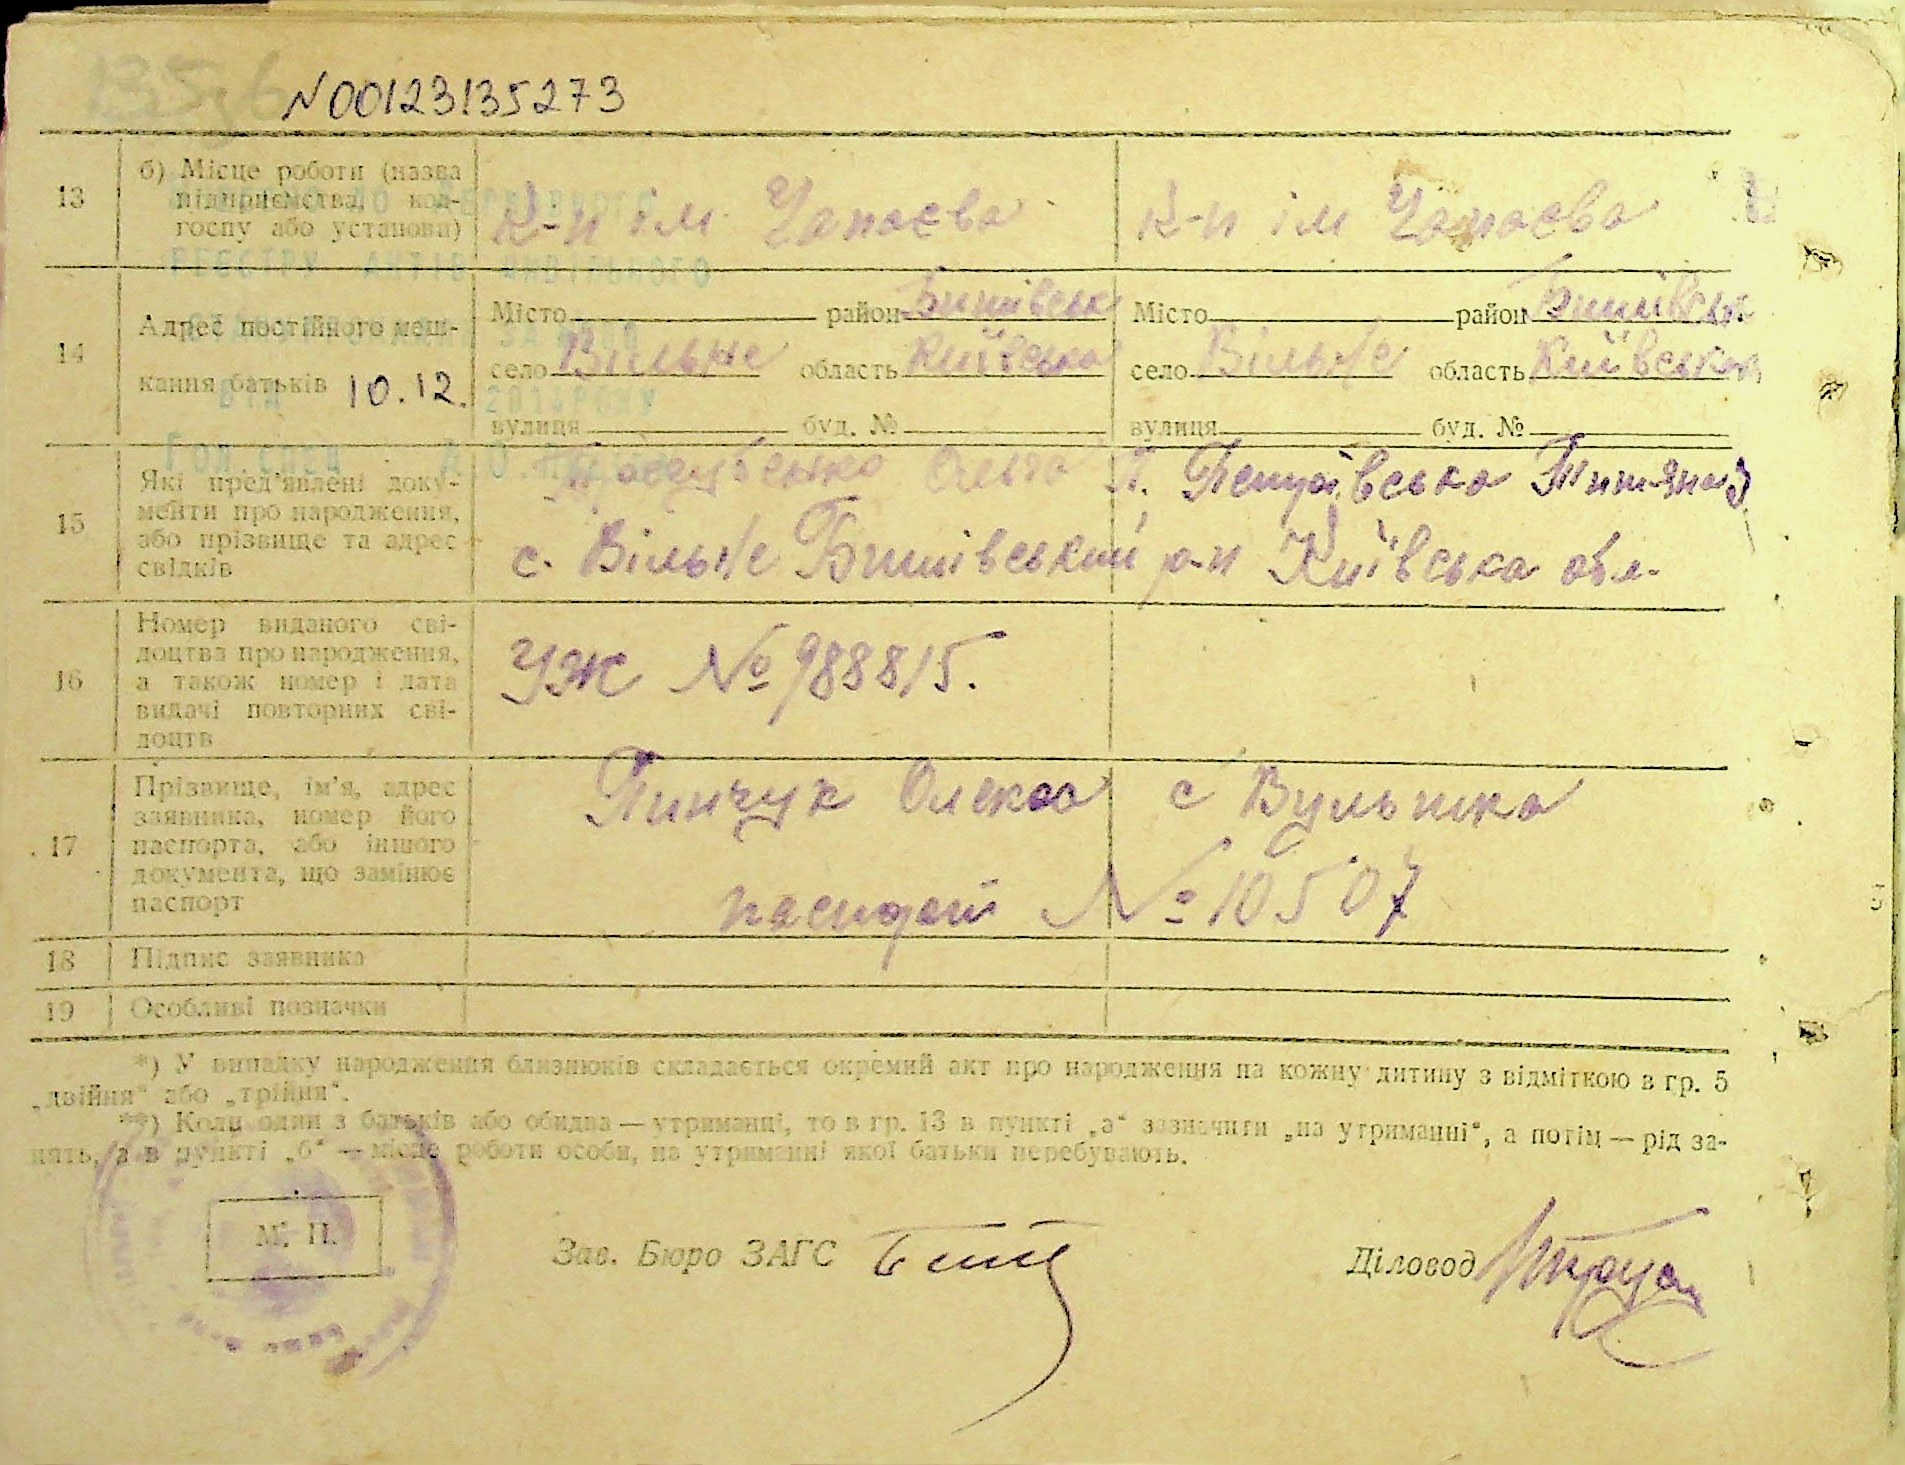 N00123135273
13 б) Місце роботи (назва підприємства, кол- госпу або установи) К-п ім Чапаєва К-п ім Чапаєва
РЕЄСТРУ АКТІВ ЦИВІЛЬНОГО
14 Адрес постійного меш- кання батьків 10.12.
Місто район Бишівськ Місто район Бишівськ
село Вільне область Київська село Вільне область Київська
вулиця буд. № вулиця буд. №
15 Які пред'явлені доку- менти про народження, або прізвище та адрес свідків
Ольга
с. Вільне Бишівський р-н Київська обл.
16 Номер виданого сві- доцтва про народження, а також номер і дата видачі повторних сві- доцтв
УЖ № 988815.
17 Прізвище, ім'я, адрес заявника, номер його паспорта, або іншого документа, що замінює паспорт
Пинчук Олекса с Вулышка
№ 10507
18 Підпис заявника
19 Особливі позначки
*) У випадку народження близнюків складається окремий акт про народження на кожну дитину з відміткою в гр. 5
„двійня“ або „трійня“.
**) Коли один з батьків або обидва — утриманці, то в гр. 13 в пункті „а“ зазначити „на утриманні“, а потім — рід за-
нять, а в пункті „б“ — місце роботи особи, на утриманні якої батьки перебувають.
М. П.
Зав. Бюро ЗАГС
Діловод